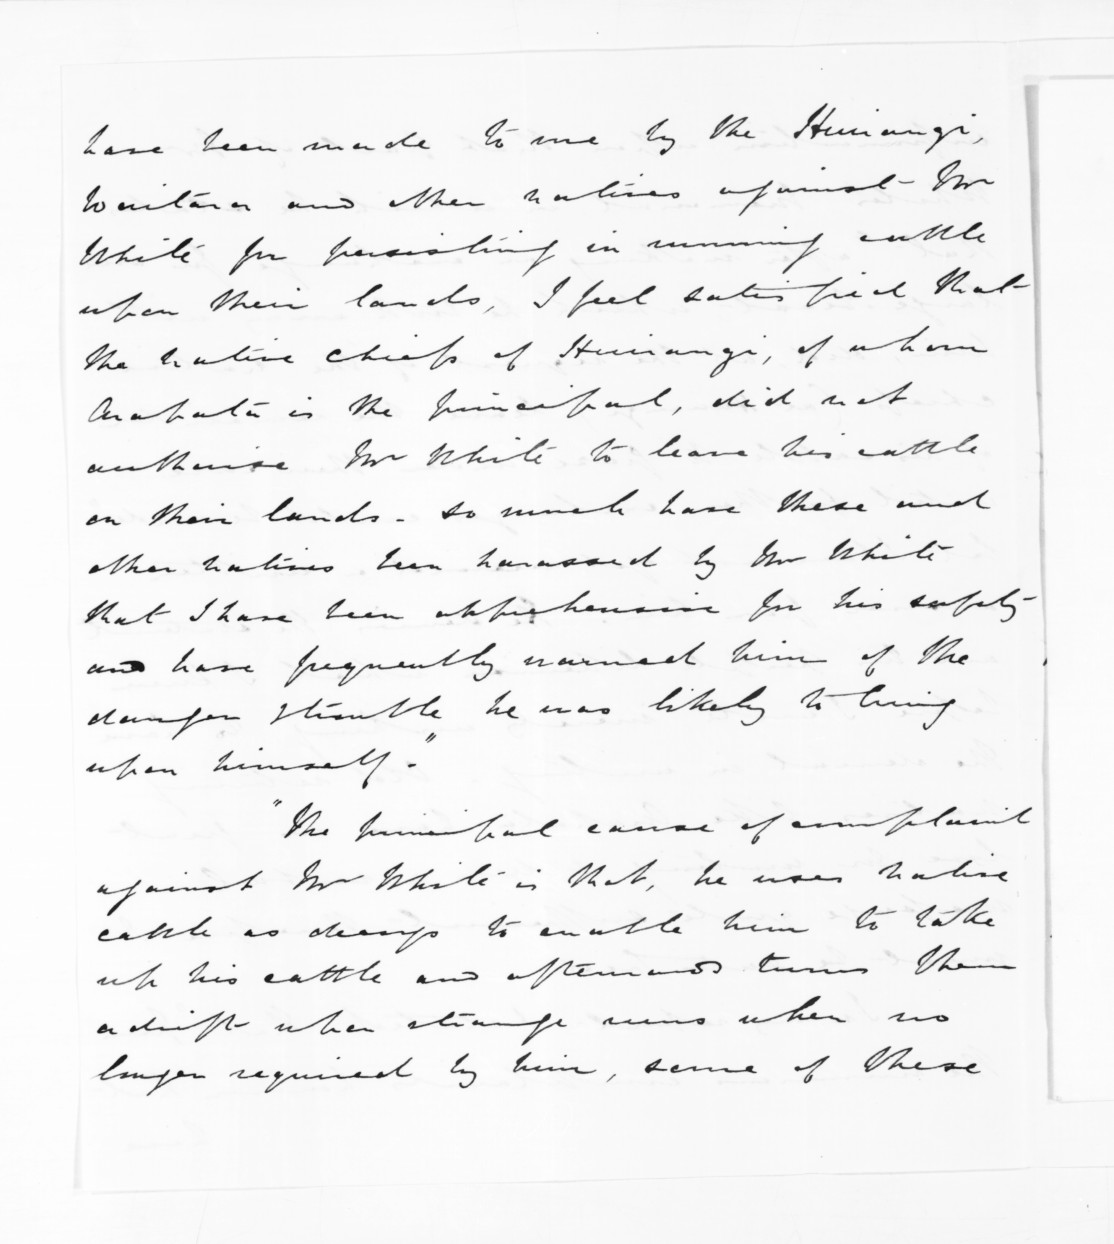 have been made to me by the Huirangi,
Waitara and other natives against Mr
White for persisting in running cattle
upon their lands, I feel satisfied that
the native chiefs of Huirangi, of whom
is the principal, did not
authorise Mr White to leave his cattle
on their lands - so much have these and
other natives been harassed by Mr White
that I have been apprehensive for his safety
and have frequently warned him of the
danger & trouble he was likely to bring
upon himself."
"The principal cause of complaint
against Mr White is that, he uses native
cattle as decoys to enable him to take
up his cattle and afterwards turns them
adrift upon strange runs when no
longer required by him, some of these